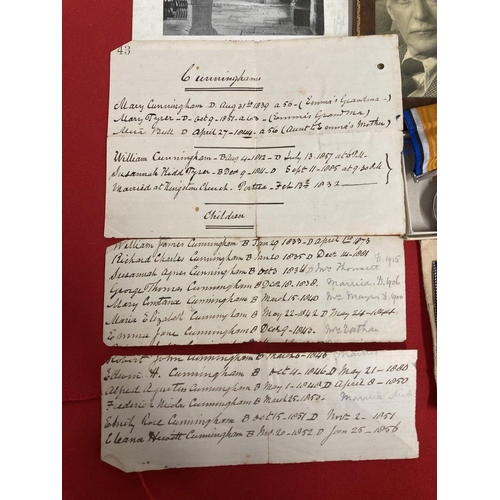 43
Cunninghams
Mary Cunningham D. Aug 31st 1839 a 50 - (Emma's Grandma)
Mary Tyrer - D - Oct 9 - 1851 - a 63 - (Emma's Grandma)
D April 27 - 1844 - a 56 (Aunt to Emma's Mother)
William Cunningham - B Aug 4 - 1812 - D July 13 - 1857 at 5 P.M.
Susannah Kidd Tyrer - B Dec 9 - 1811 - D Sept 11 - 1885 at 9.30 P.M.
Married at Kingston Church. Portsea - Feb 13th 1832
Children
William James Cunningham B Jan 29 1833 - D April 1st 1873
Richard Charles Cunningham B Jan 20 1835 D Dec 14 - 1881
Susannah Agnes Cunningham B Oct 3 1836 D Mrs D. 1915
George Thomas Cunningham B Dec 18. 1838. Married. D. 1906
Mary Constance Cunningham B March 15 - 1840 Mrs Mayes D 1900
Maria Elizabeth Cunningham B May 22 - 1842 D May 24 - 1844.
Emma Jane Cunningham B Dec 9 - 1843. Mrs
Robert John Cunningham B 6 - 1846 Married
Edwin H. Cunningham B Oct 4 - 1846 D May 21 - 1880
Alfred Augustus Cunningham B May 1 - 1848 D April 8 - 1850
Frederick Nicole Cunningham B March 25 - 1850 - Married
Emily Rose Cunningham B Oct 15 - 1851 D Novr 2 - 1851
Eleana Hewett Cunningham B Nov 20 - 1852 D Jan 25 - 1856